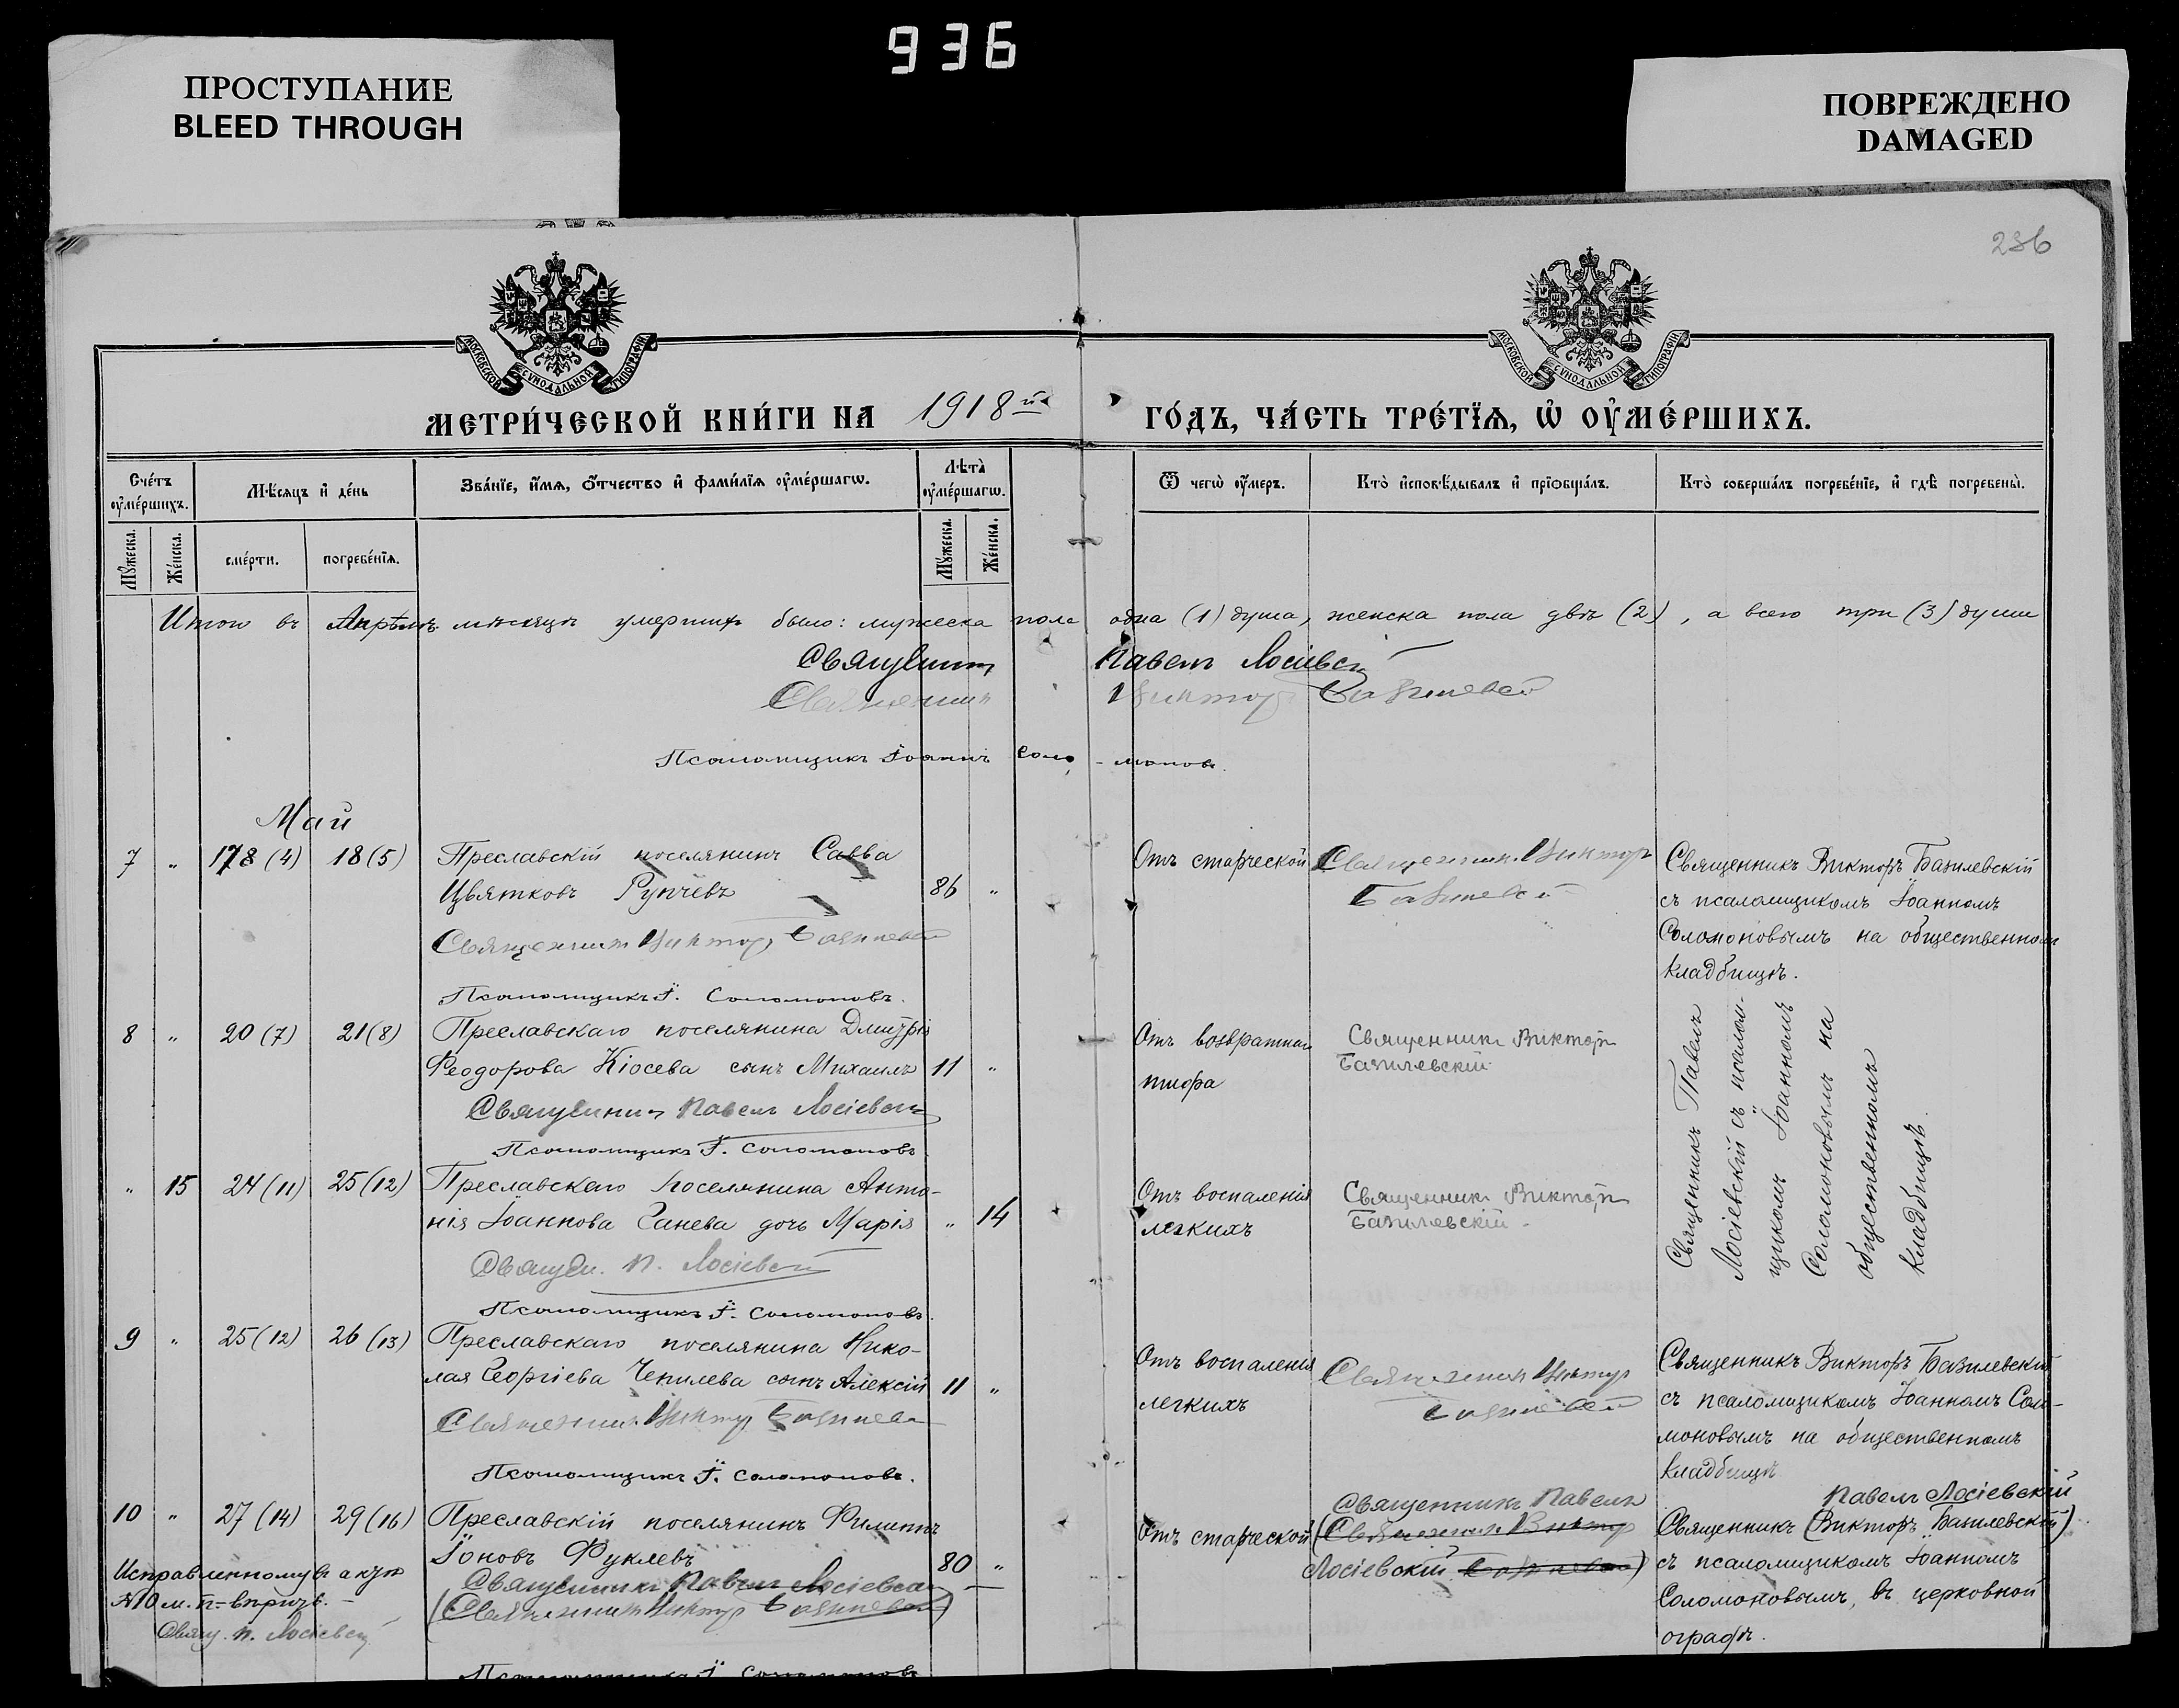 936
ПРОСТУПАНИЕ
BLEED THROUGH
ПОВРЕЖДЕНО
DAMAGED
236
МОСКОВСКОЙ СѴНОДАЛЬНОЙ ТИПОГРАФІИ
МОСКОВСКОЙ СѴНОДАЛЬНОЙ ТИПОГРАФІИ
МЕТРИ́ЧЕСКОЙ КНИ́ГИ НА 1918 й ГО́ДЪ, ЧА́СТЬ ТРЕ́ТЇѦ, Ѡ҆ ОУ҆МЕ́РШИХЪ.
Сче́тъ оу҆ме́ршихъ.
Мѣ́сяцъ и҆ де́нь
Зва́нїе, и҆́мѧ, ѻ҆́тчество и҆ фами́лїѧ оу҆ме́ршагѡ.
Лѣта̀ оу҆ме́ршагѡ.
Ѿ чегѡ̀ оу҆́меръ.
Кто̀ и҆сповѣ́дывалъ и҆ прїѻбща́лъ.
Кто̀ соверша́лъ погребе́нїе, и҆ гдѣ̀ погребены̀.
Мꙋ́жеска.
Же́нска.
сме́рти.
погребе́нїѧ.
Мꙋ́жеска.
Же́нска.
Итого въ Апрѣлѣ мѣсяцѣ умершихъ было: мужеска пола одна (1) душа, женска пола двѣ (2), а всего три (3) души
Священникъ Павелъ Лосіевскій
Священникъ Викторъ Базилевскій
Псаломщикъ Іоаннъ Соло-моновъ.
Май
7 " 178 (4) 18 (5) Преславскій поселянинъ Савва
Цвятковъ Рупчевъ 86 "
Священникъ Викторъ Базилевскій
Псаломщикъ І. Соломоновъ.
Отъ старческой
Священникъ Викторъ
Базилевскій
Священникъ Викторъ Базилевскій
съ псаломщикомъ Іоанномъ
Соломоновымъ на общественномъ
кладбищѣ.
8 " 20 (7) 21 (8) Преславскаго поселянина Димитрія
Феодорова Кіосева сынъ Михаилъ 11 "
Священникъ Павелъ Лосіевскій
Псаломщикъ І. Соломоновъ
Отъ возвратнаго
тифа
Священникъ Викторъ
Базилевскій
Священникъ Павелъ
Лосіевскій съ псалом-
щикомъ Іоанномъ
Соломоновымъ на
общественномъ
кладбищѣ.
" 15 24 (11) 25 (12) Преславскаго поселянина Анто-
нія Іоаннова Ганева дочь Марія " 14
Священ. П. Лосіевскій
Псаломщикъ І. Соломоновъ.
Отъ воспаленія
легкихъ
Священникъ Викторъ
Базилевскій
9 " 25 (12) 26 (13) Преславскаго поселянина Нико-
лая Георгіева Чепилева сынъ Алексій 11 "
Священникъ Викторъ Базилевскій
Псаломщикъ І. Соломоновъ.
Отъ воспаленія
легкихъ
Священникъ Викторъ
Базилевскій
Священникъ Викторъ Базилевскій
съ псаломщикомъ Іоанномъ Соло-
моновымъ на общественномъ
кладбищѣ
10 " 27 (14) 29 (16) Преславскій поселянинъ Филиппъ
Іоновъ Фуклевъ 80 "
Священникъ Павелъ Лосіевскій
(Священникъ Викторъ Базилевскій)
Псаломщикъ І. Соломоновъ
Исправленному въ актѣ
№10 м. п.
Свящ. П. Лосіевскій
Отъ старческой
Священникъ Павелъ
(Священникъ Викторъ
Лосіевскій Базилевскій)
Павелъ Лосіевскій
Священникъ (Викторъ Базилевскій)
съ псаломщикомъ Іоанномъ
Соломоновымъ, въ церковной
оградѣ.